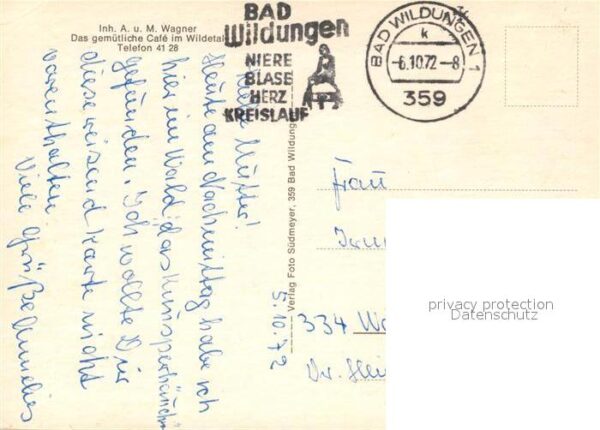 Inh. A. u. M. Wagner
Das gemütliche Café im Wildetal
Telefon 41 28
BAD
Wildungen
NIERE
BLASE
HERZ
KREISLAUF
BAD WILDUNGEN 1
k
-6.10.72-8
359
Liebe Mutter!
Heute am Nachmittag habe ich
hier im Wald das Knusperhäuschen
gefunden. Ich wollte Dir
diese reizend Karte nicht
vorenthalten.
Viele Grüße Annelies
5.10.72
Verlag Foto Südmeyer, 359 Bad Wildung
Frau
334 Wo
Dr. Hei
privacy protection
Datenschutz